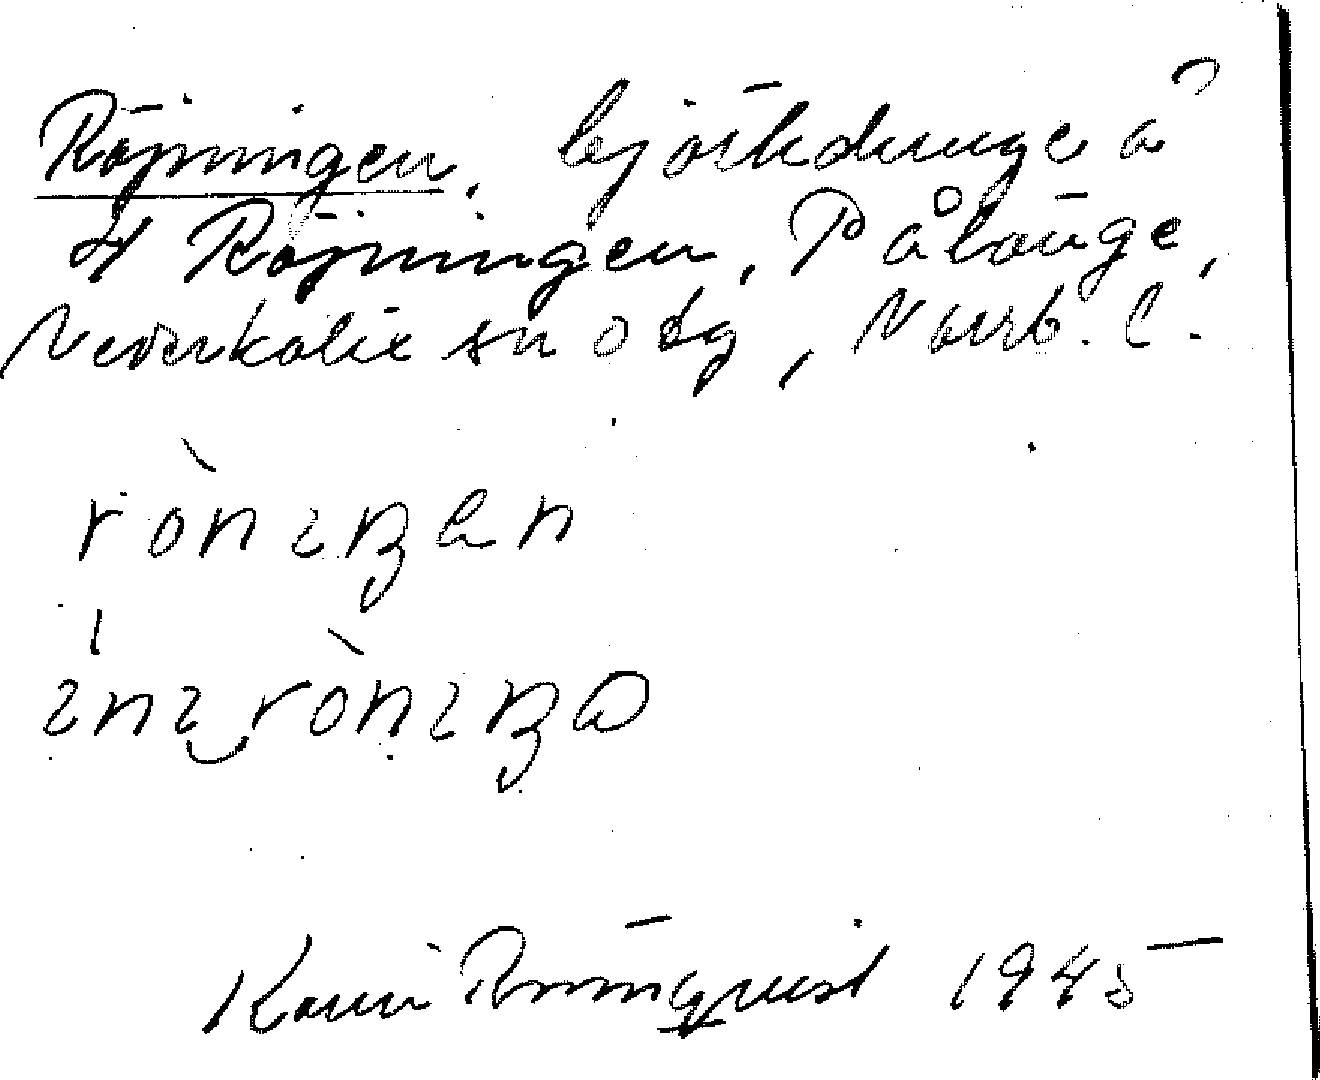 Röjningen, björkdunge å
4 Röjningen, Pålänge,
Nederkalix sn o tg, Norrb. l.
rònıŋen
ını rònıŋa
Karin Römqvist 1945